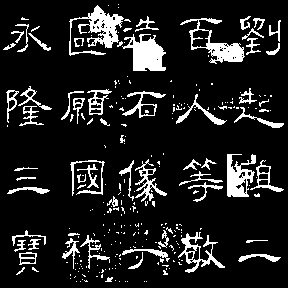 劉起祖二
百人等敬
造石像一
區願國祚
永隆三寶